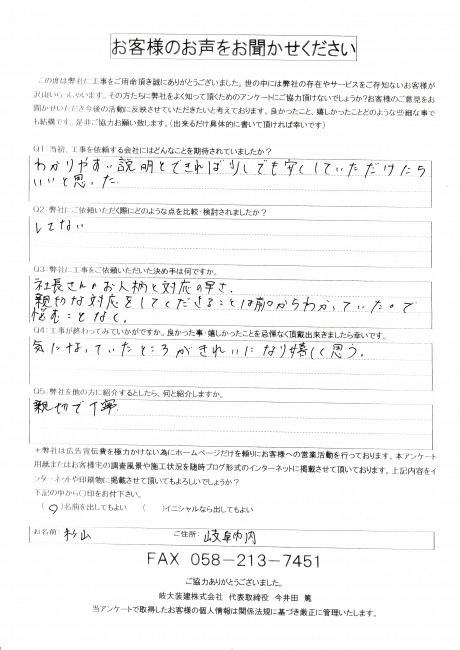 お客様のお声をお聞かせください
この度は弊社に工事をご用命頂き誠にありがとうございました。世の中には弊社の存在やサービスをご存知ないお客様が
沢山いらっしゃいます。その方たちに弊社をよく知って頂くためのアンケートにご協力頂けないでしょうか?お客様のご意見をお
聞かせいただき今後の活動に反映させていただきたいと考えております。良かったこと、嬉しかったことどのような些細な事で
も結構です。是非ご協力お願い致します。(出来るだけ具体的に書いて頂ければ幸いです)
Q1:当初、工事を依頼する会社にはどんなことを期待されていましたか?
わかりやすい説明とできれば少しでも安くしていただけたら
いいと思った
Q2:弊社にご依頼いただく際にどのような点を比較・検討されましたか?
してない
Q3:弊社に工事をご依頼いただいた決め手は何ですか。
社長さんのお人柄と対応の早さ.
親切な対応をしてくださることは前からわかっていたので
悩むことなく.
Q4:工事が終わってみていかがですか。良かった事・嬉しかったことを忌憚なく頂戴出来きましたら幸いです。
気になっていたところがきれいになり嬉しく思う.
Q5:弊社を他の方に紹介するとしたら、何と紹介しますか。
親切で丁寧.
+弊社は広告宣伝費を極力かけない為にホームページだけを頼りにお客様への営業活動を行っております。本アンケート
用紙またはお客様宅の調査風景や施工状況を随時ブログ形式のインターネットに掲載させて頂いております。上記内容をイ
ンターネットや印刷物に掲載させて頂いてもよろしいでしょうか?
下記の中から○印をお付下さい。
(○)名前を出してもよい ( )イニシャルなら出してもよい
お名前: 杉山 ご住所: 岐阜市内
FAX 058-213-7451
ご協力ありがとうございました。
岐大装建株式会社 代表取締役 今井田 篤
当アンケートで取得したお客様の個人情報は関係法規に基づき厳正に管理いたします。